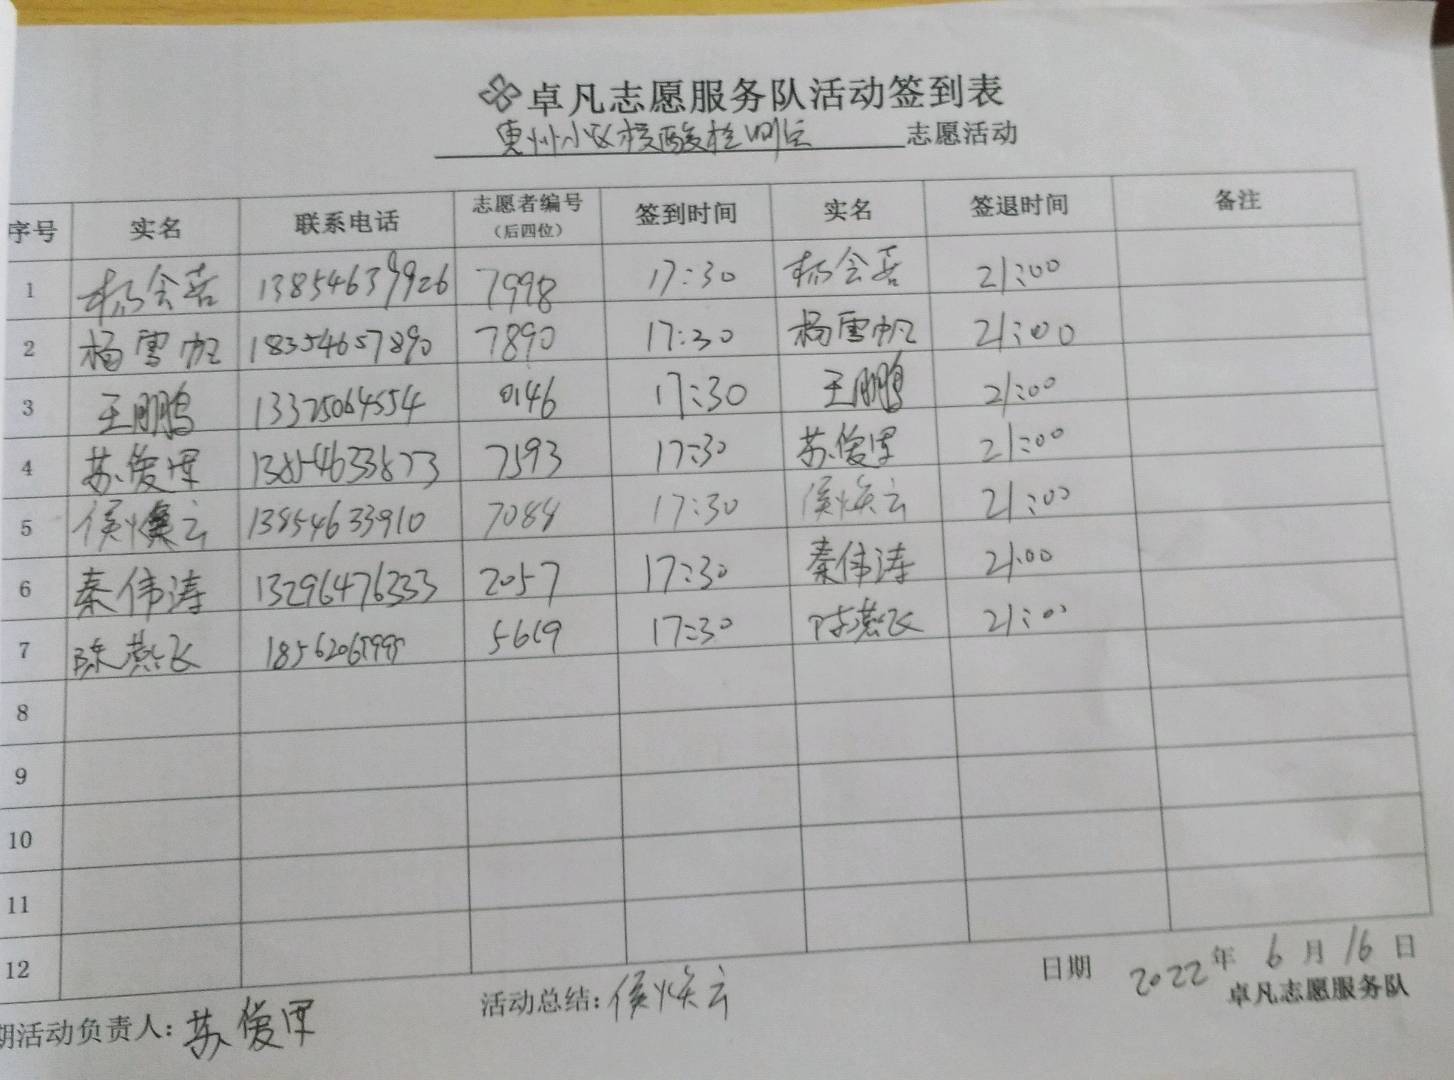 卓凡志愿服务队活动签到表
惠州小区核酸检测点 志愿活动
序号 实名 联系电话 志愿者编号（后四位） 签到时间 实名 签退时间 备注
1 杨会喜 7998 17:30 杨会喜 21:00
2 杨雪帆 18354657890 7890 17:30 杨雪帆 21:00
3 王鹏 13325064554 0146 17:30 王鹏 21:00
4 苏俊 13854633873 7593 17:30 苏俊 21:00
5 侯焕云 13854633910 7088 17:30 侯焕云 21:00
6 秦伟涛 13296476333 2057 17:30 秦伟涛 21:00
7 陈燕飞 5619 17:30 陈燕飞 21:00
8
9
10
11
12
期活动负责人: 苏俊 活动总结: 侯焕云 日期 2022年6月16日
卓凡志愿服务队